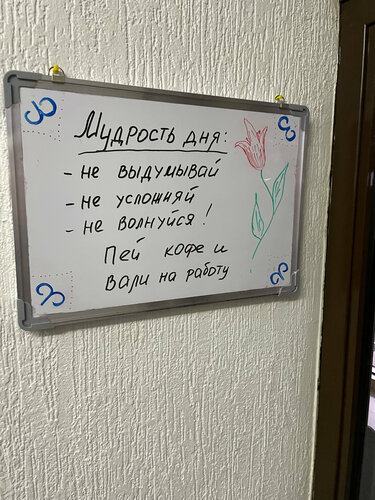 Мудрость дня:
- не выдумывай
- не усложняй
- не волнуйся!
Пей кофе и
вали на работу